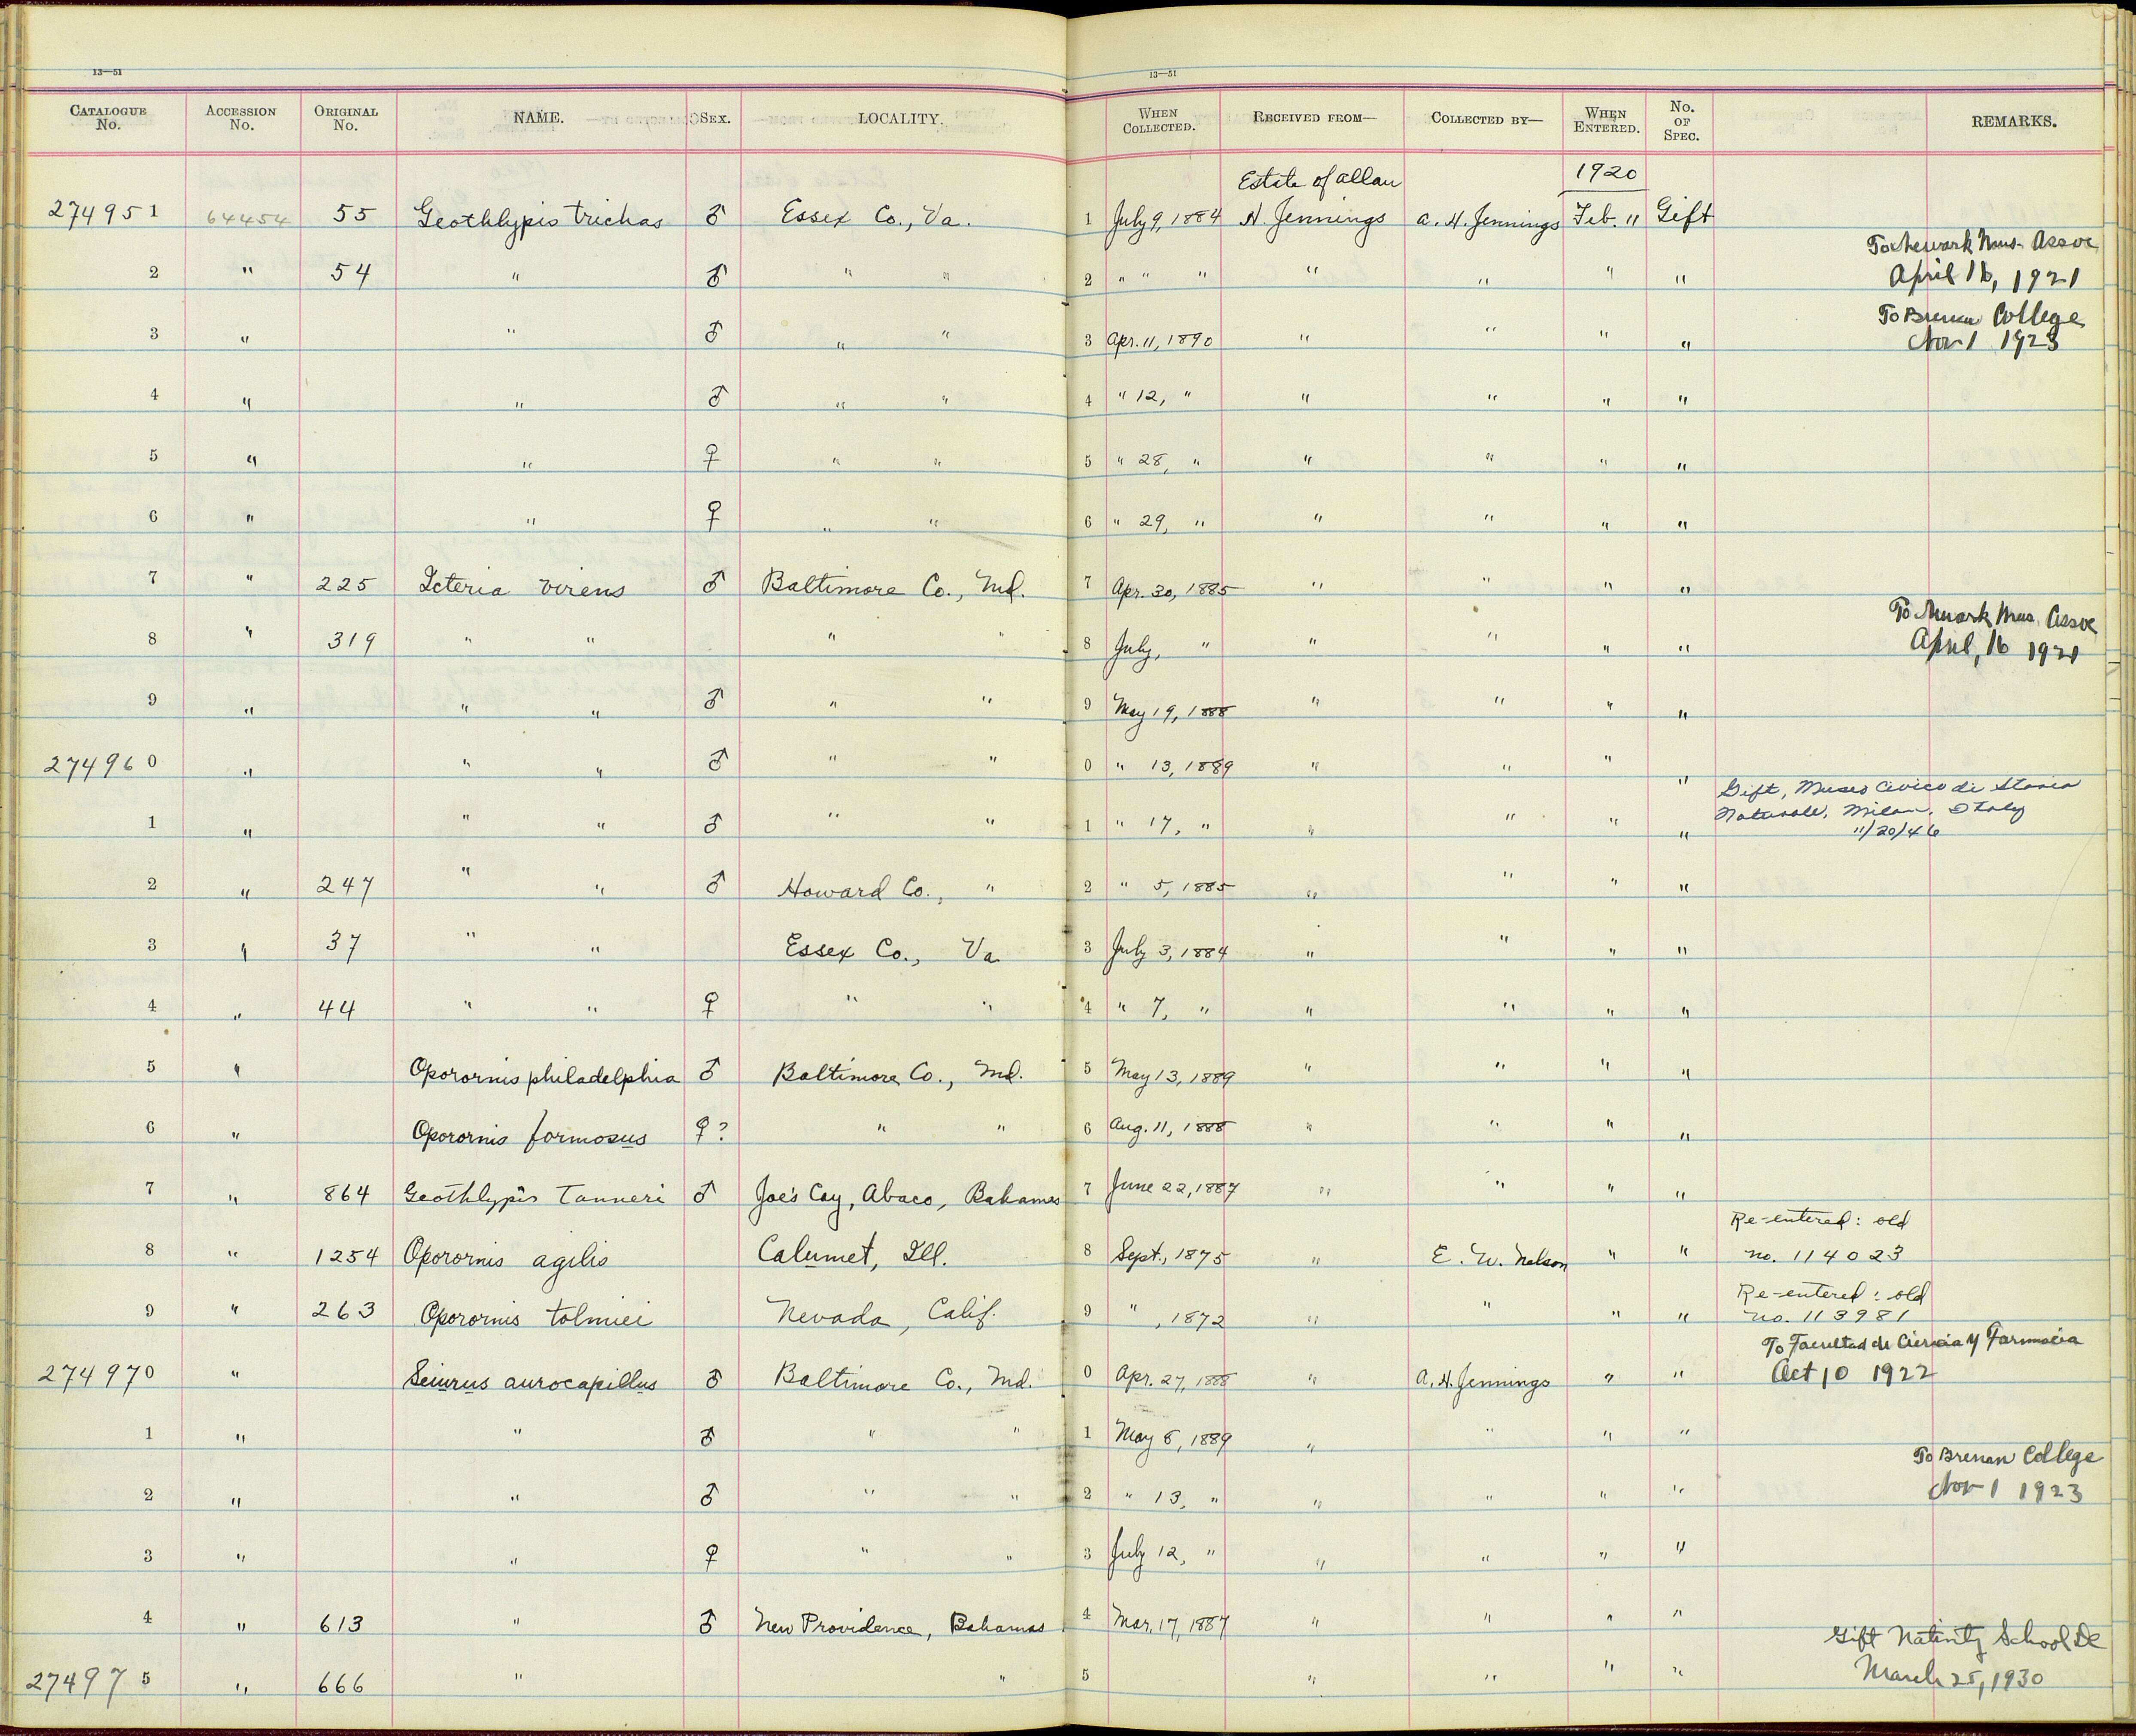 13—51 13—51
CATALOGUE No. ACCESSION No. ORIGINAL No. NAME. SEX. LOCALITY. WHEN COLLECTED. RECEIVED FROM— COLLECTED BY— WHEN ENTERED. No. OF SPEC. REMARKS.
Estate of Allan 1920
274951 64454 55 Geothlypis trichas ♂ Essex Co., Va. 1 July 9, 1884 H. Jennings A. H. Jennings Feb. 11 Gift
To Newark Mus. Assoc
2 " 54 " ♂ " " 2 " " " " " " " April 16, 1921
To Brenau College
3 " " ♂ " " 3 Apr. 11, 1890 " " " " Nov 1 1923
4 " " ♂ " " 4 " 12, " " " " "
5 " " ♀ " " 5 " 28, " " " " "
6 " " ♀ " " 6 " 29, " " " " "
7 " 225 Icteria virens ♂ Baltimore Co., Md. 7 Apr. 30, 1885 " " " "
To Newark Mus. Assoc
8 " 319 " " " " 8 July, " " " " " April, 16 1921
9 " " " ♂ " " 9 May 19, 1888 " " " "
274960 " " " ♂ " " 0 " 13, 1889 " " " "
Gift, Museo Civico di Storia
Naturale, Milan, Italy
1 " " " ♂ " " 1 " 17, " " " " " 11/20/46
2 " 247 " " ♂ Howard Co., " 2 " 5, 1885 " " " "
3 " 37 " " Essex Co., Va 3 July 3, 1884 " " " "
4 " 44 " " ♀ " " 4 " 7, " " " " "
5 " Oporornis philadelphia ♂ Baltimore Co., Md. 5 May 13, 1889 " " " "
6 " Oporornis formosus ♀? " " 6 Aug. 11, 1888 " " " "
7 " 864 Geothlypis tanneri ♂ Joe's Cay, Abaco, Bahamas 7 June 22, 1887 " " " "
Re-entered: old
8 " 1254 Oporornis agilis Calumet, Ill. 8 Sept., 1875 " E. W. Nelson " " no. 114023
Re-entered: old
9 " 263 Oporornis tolmiei Nevada, Calif. 9 " , 1872 " " " " no. 113981
To Facultad de Ciencia y Farmacia
274970 " Seiurus aurocapillus ♂ Baltimore Co., Md. 0 Apr. 27, 1888 " A. H. Jennings " " Oct 10 1922
1 " " ♂ " " 1 May 6, 1889 " " " "
To Brenan College
2 " " ♂ " " 2 " 13, " " " " " Nov 1 1923
3 " " ♀ " " 3 July 12, " " " " "
4 " 613 " ♂ New Providence, Bahamas 4 Mar. 17, 1887 " " " "
Gift Nativity School DC
274975 " 666 " " 5 " " " " March 25, 1930